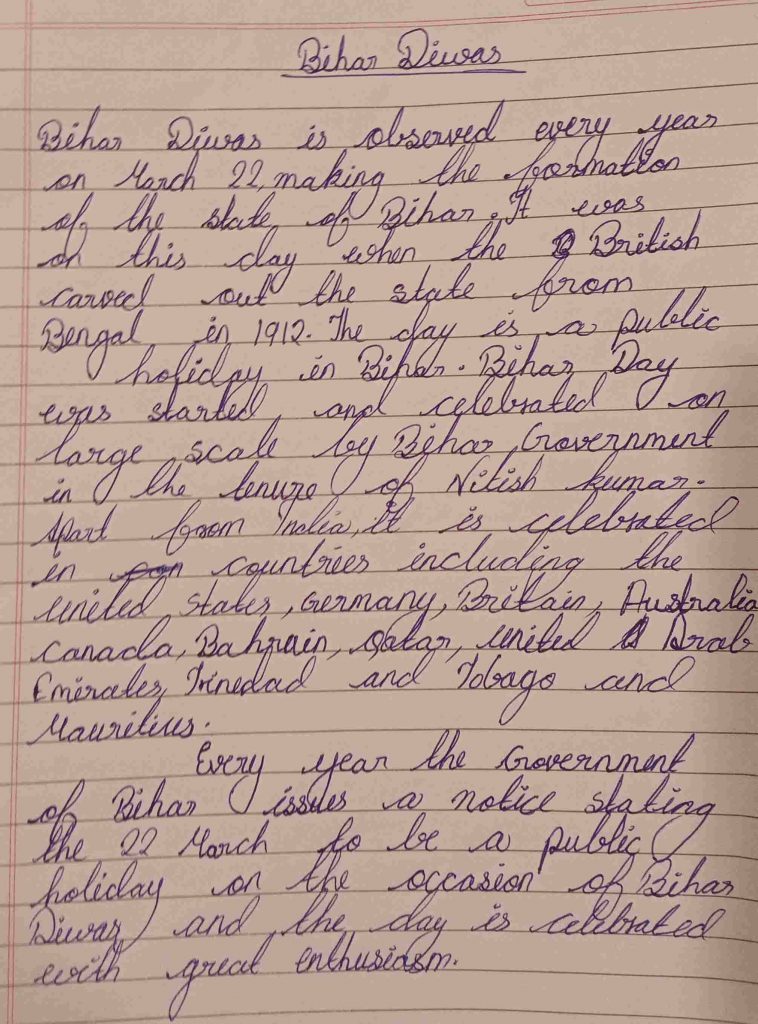 Bihar Diwas
Bihar Diwas is observed every year
on March 22, making the formation
of the state of Bihar. It was
on this day when the British
carved out the state from
Bengal in 1912. The day is a public
holiday in Bihar. Bihar Day
was started and celebrated on
large scale by Bihar Government
in the tenure of Nitish kumar.
Apart from India, it is celebrated
in countries including the
united states, Germany, Britain, Australia
Canada, Bahrain, Qatar, united Arab
Emirates, Trinedad and Tobago and
Mauritius.
Every year the Government
of Bihar issues a notice stating
the 22 March to be a public
holiday on the occasion of Bihar
Diwas and the day is celebrated
with great enthusiasm.